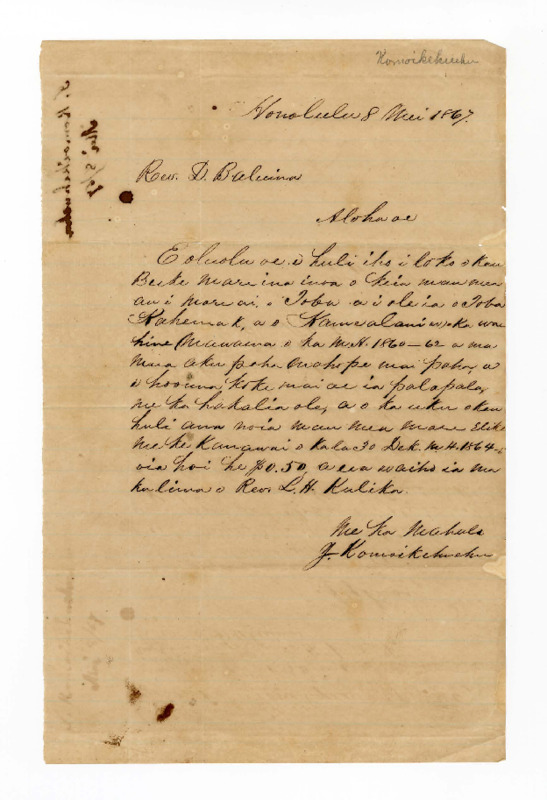 Komoikehuehu
Honolulu 8 Mei 1867.
Rev. D. Baluina
Aloha oe
E oluolu oe e huli iho i loko o kau
Buke mare ina inoa o keia mau mea
a'u i mare ai. o Ioba a i ole ia o Ioba
Kahemak, a o Kamealani w. ka wa
hine Mawaena o ka M.H. 1860-62 a ma
mua aku paha mahope mai paha, a
e hoouna koke mai oe ia palapala,
me ka hakalia ole, a o ka uku o kau
huli ana no ia mau mea mare. E like
me ke Kanawai o ka la 30 Dek. M.H. 1864
oia hoi he $0.50, a eia waiho ia ma
ka lima o Rev. L. H. Kulika.
Me ka Mahalo
J. Komoikehuehu
J. Komoikehuehu
Mei 8/67